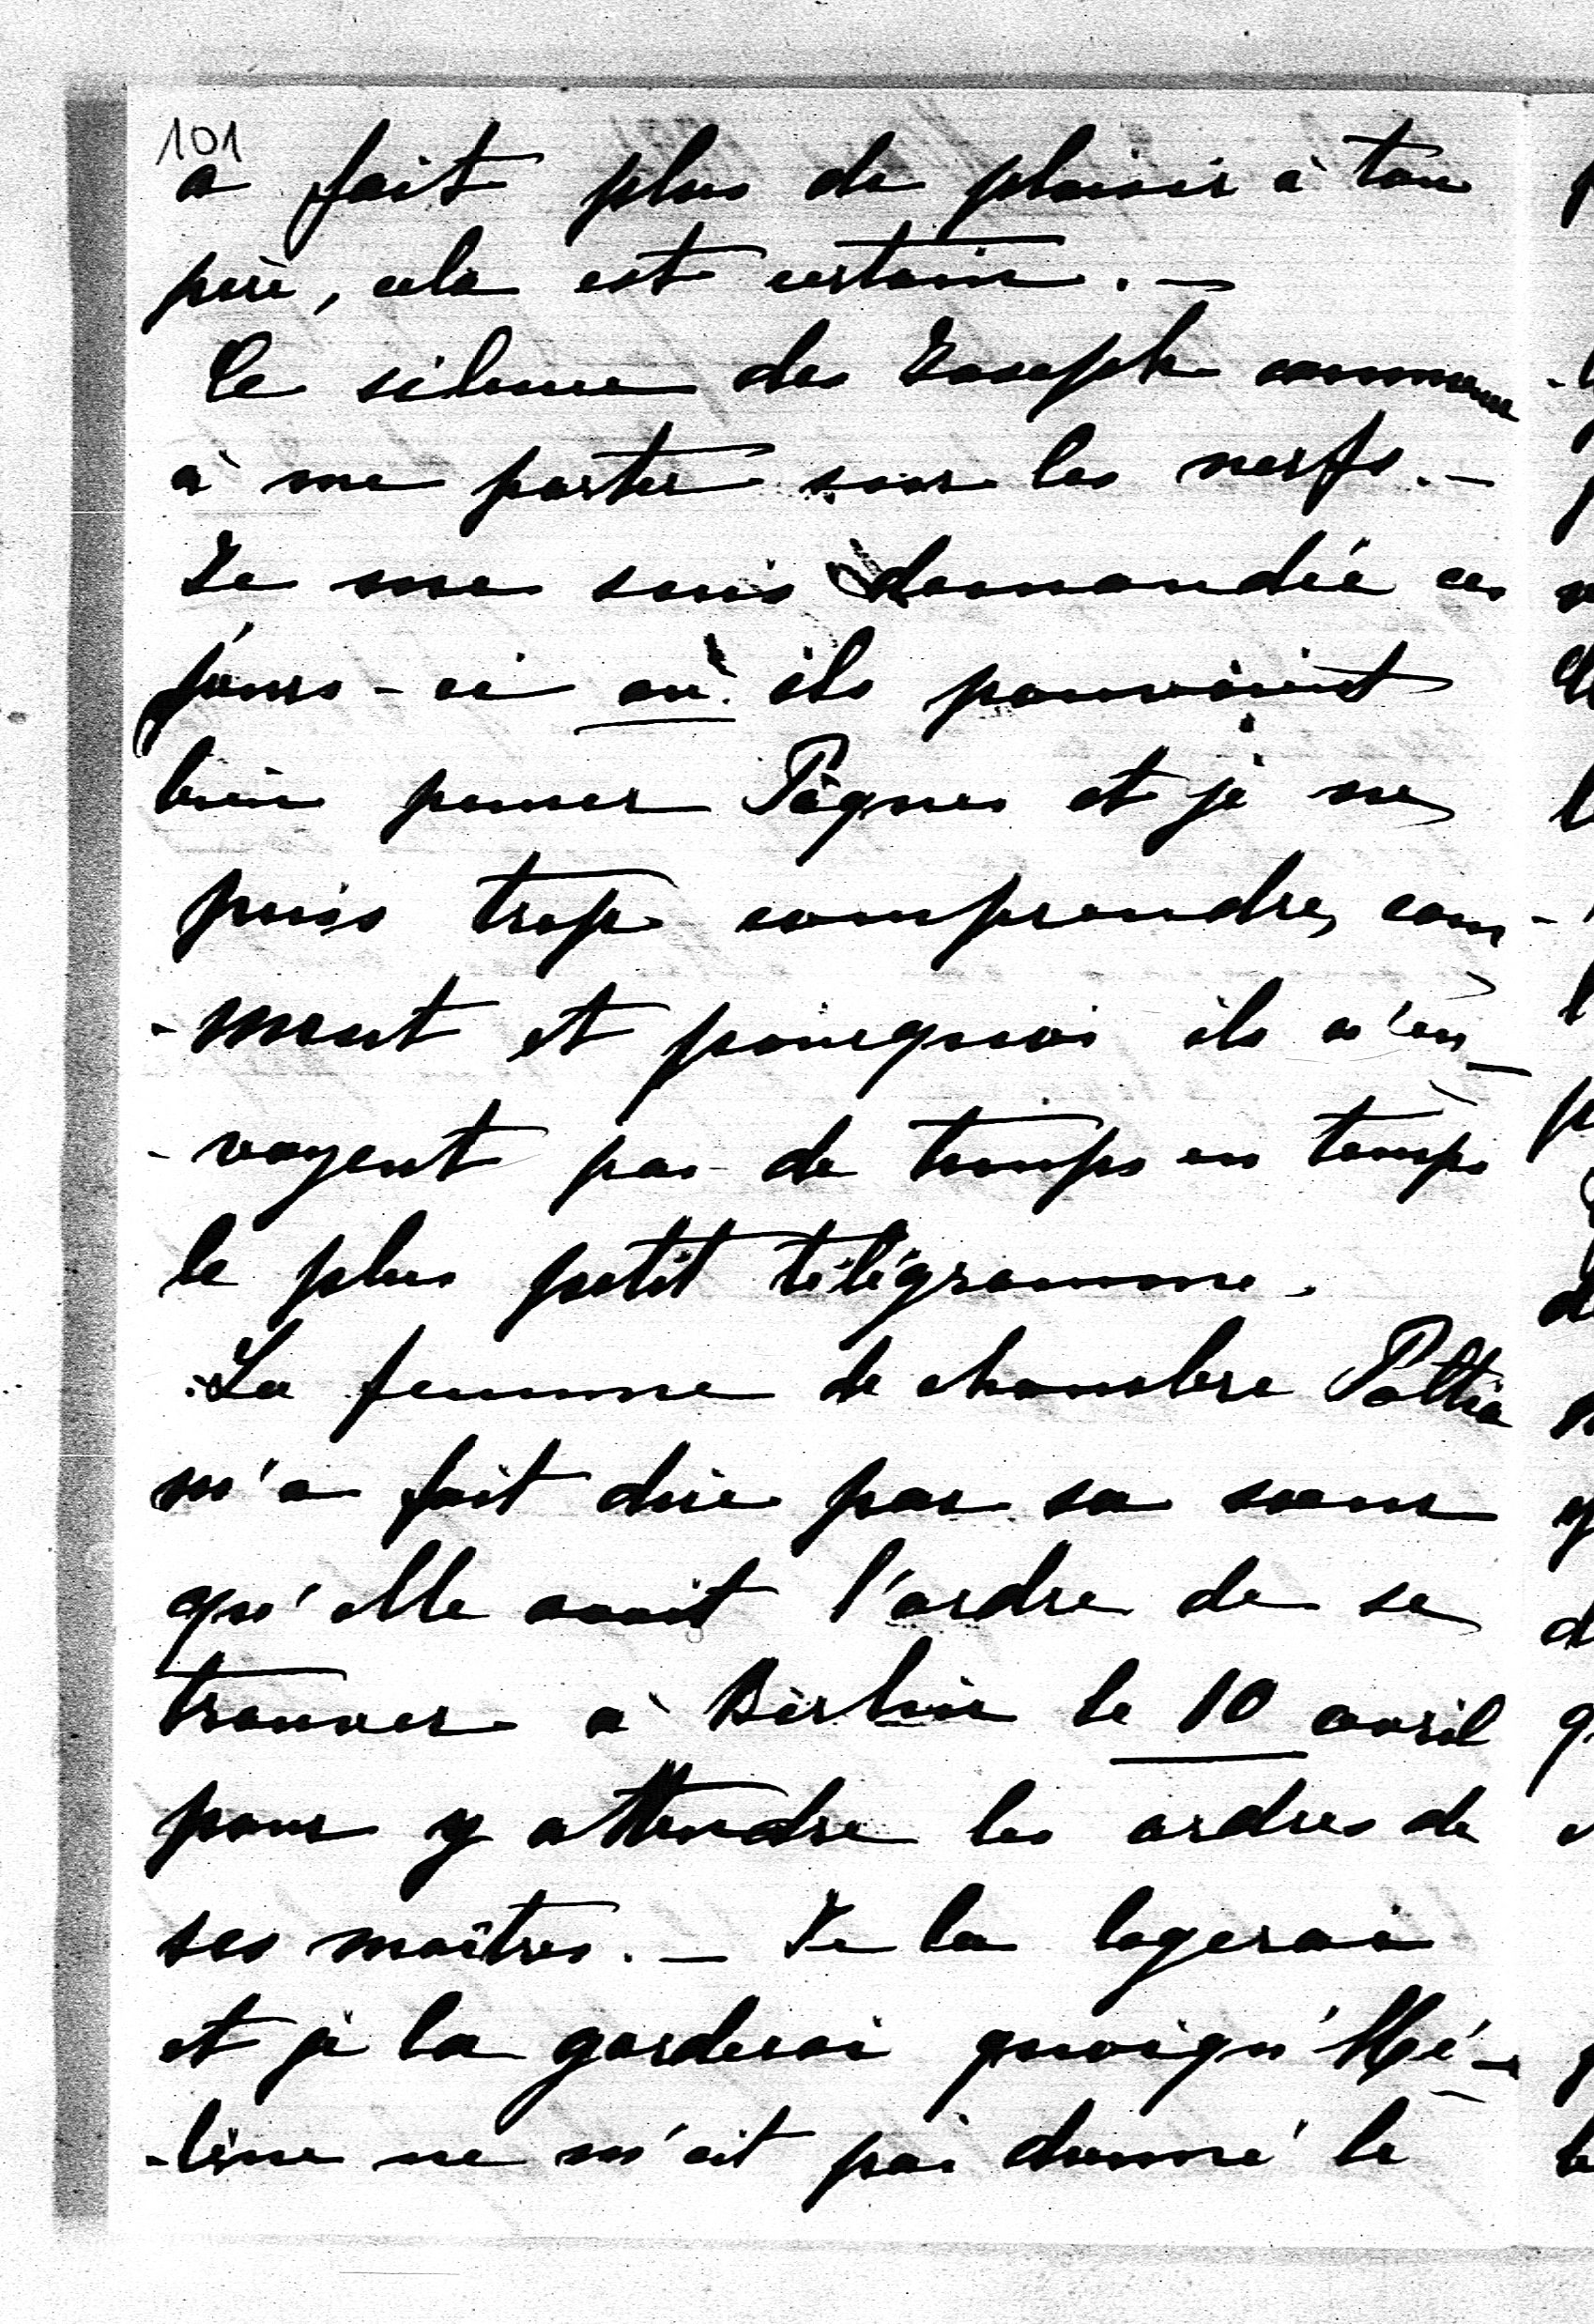 101
a fait plus de plaisir à ton
père, cela est certain. —
Ce silence des Joseph commence
à me porter sur les nerfs. —
Je me suis demandée ces
jours-ci où ils pouvaient
bien passer Pâques et je ne
puis trop comprendre, com-
-ment et pourquoi ils n'en-
-voyent pas de temps en temps
le plus petit télégramme.
La femme de chambre
m'a fait dire par sa sœur
qu'elle avait l'ordre de se
trouver à Berlin le 10 avril
pour y attendre les ordres de
ses maîtres. — Je la logerai
et je la garderai quoiqu'Hé-
-lène ne m'ait pas donné le